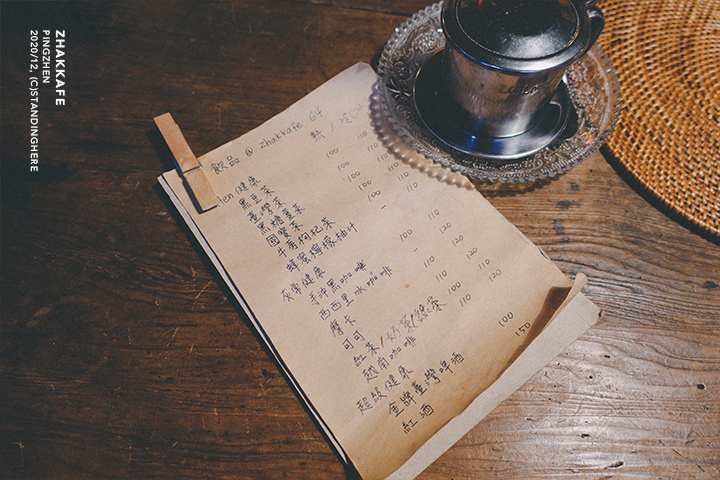 ZHAKKAFE
PINGZHEN
2020/12, (C)STANDINGHERE
飲品 @ zhakkafe 64 熱 /
健康
黑豆茶 100
臺灣茶 100
黑糖薑茶 100
國寶茶 100
牛蒡枸杞茶 100 110
蜂蜜檸檬柚汁 - 110
灰常健康
手沖黑咖啡 100 120
西西里冰咖啡 - 120
摩卡 110 120
可可 110 110
紅茶/奶茶/綠茶 100 110
越南咖啡 110 120
超級健康
金牌臺灣啤酒 100
紅酒 150